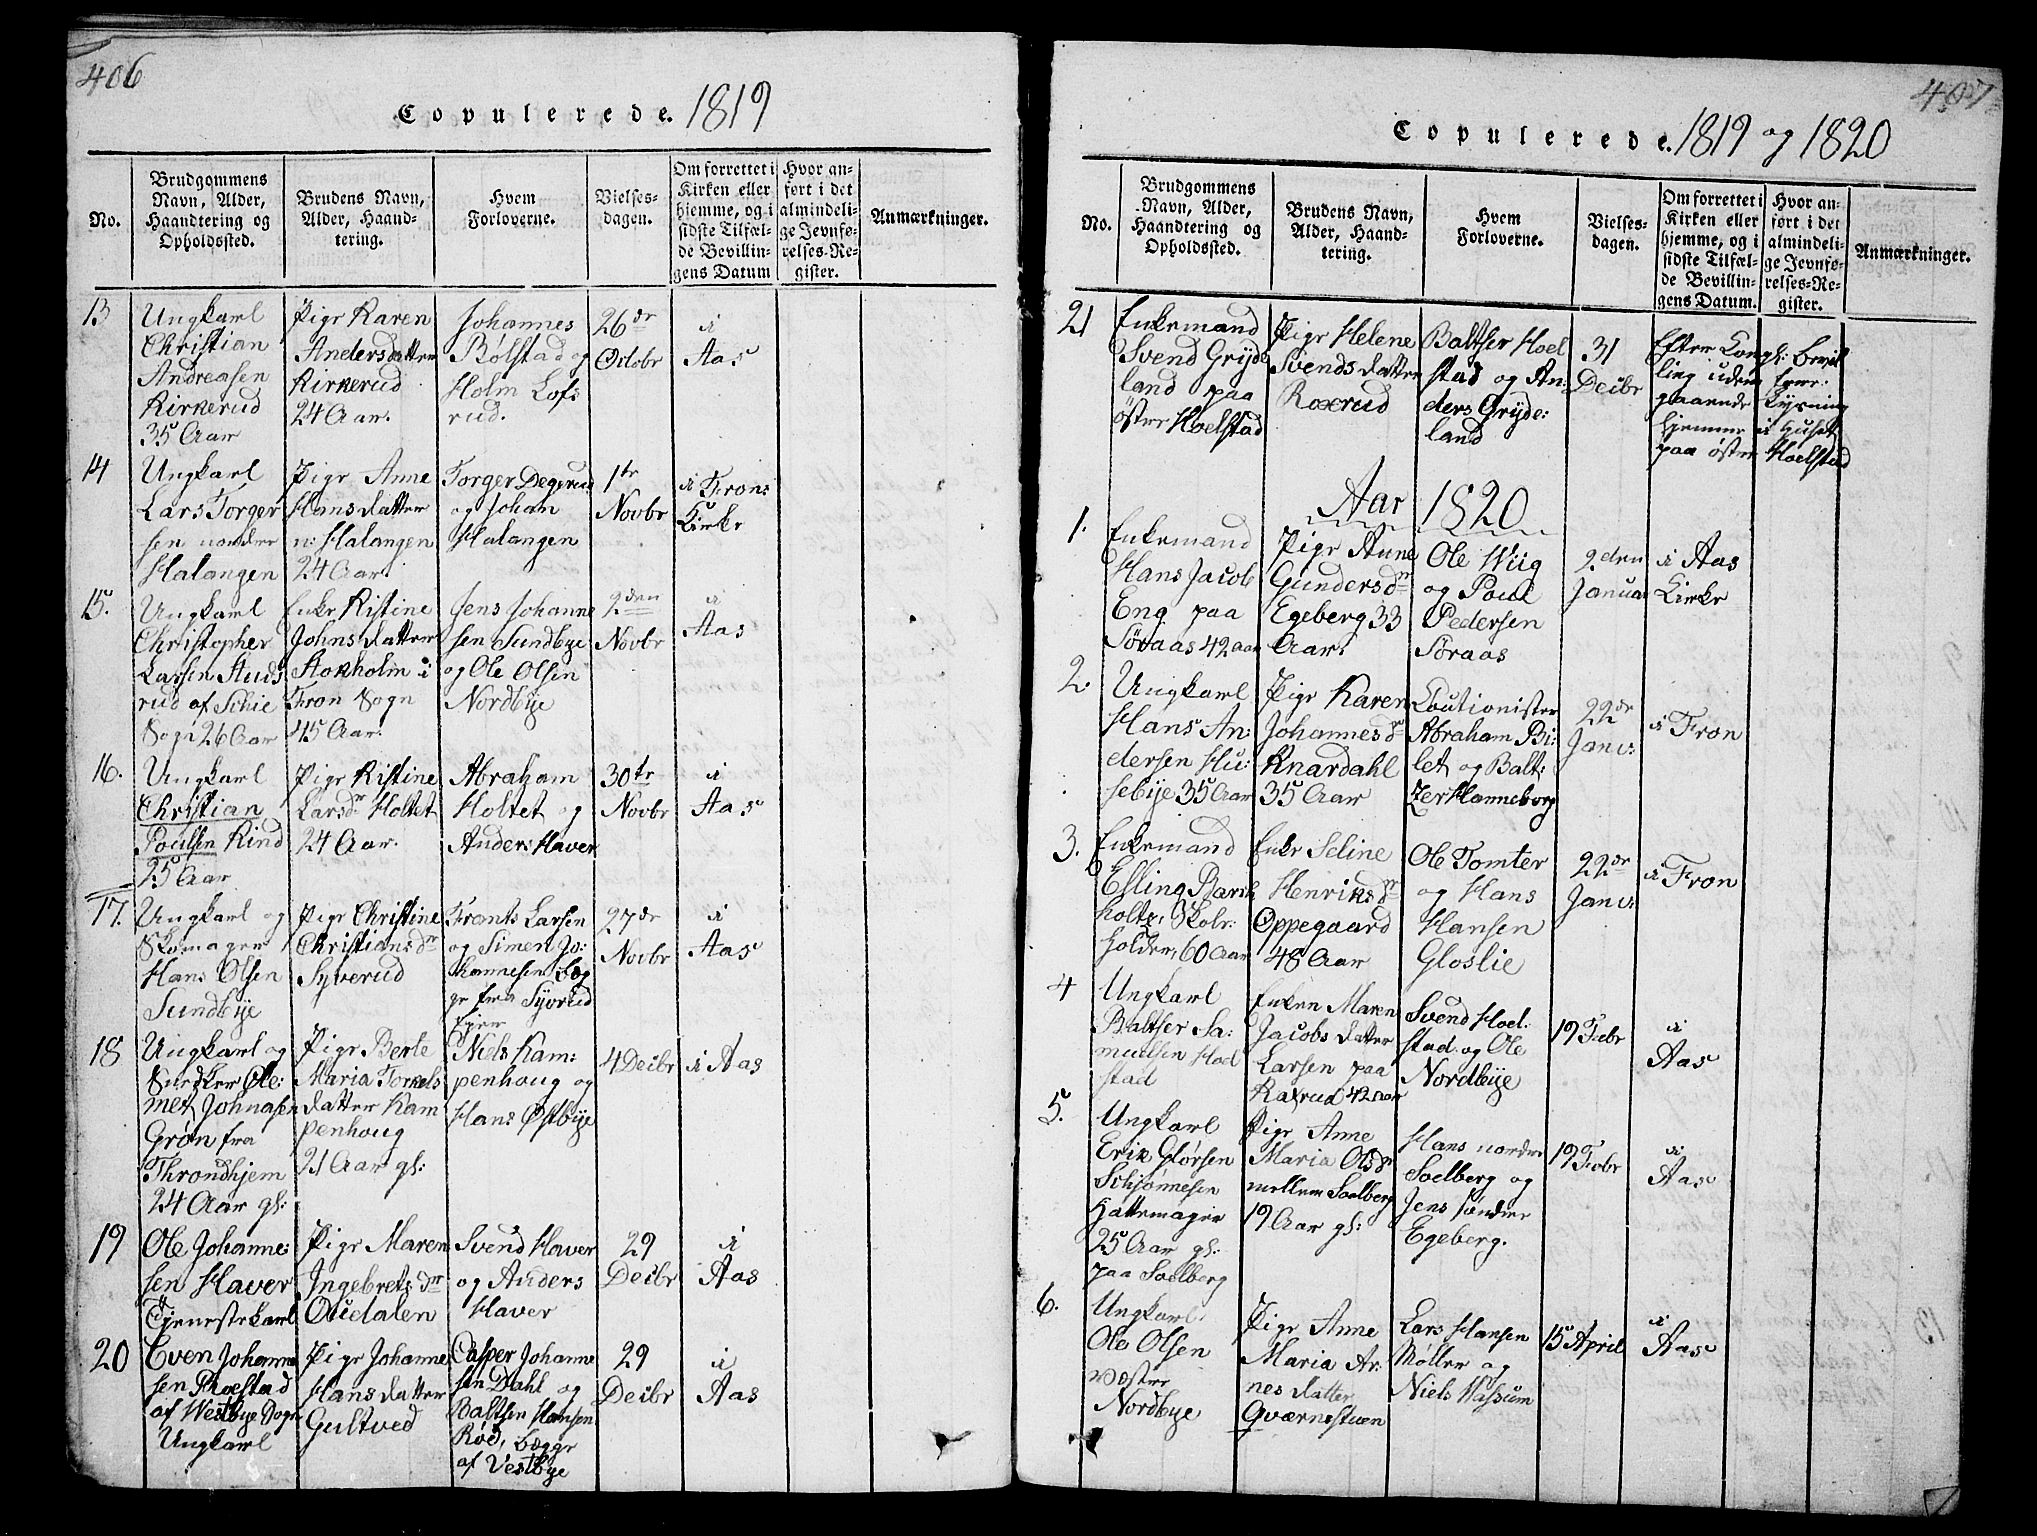 406
Copulerede. 1819
No.
Brudgommens
Navn, Alder,
Haandtering og
Opholdssted.
Brudens Navn,
Alder, Haand-
tering.
Hvem
Forloverne.
Vielses-
dagen.
Om forrettet i
Kirken eller
hjemme, og i
sidste Tilfæl-
de Bevillin-
gens Datum
Hvor an-
ført i det
almindeli-
ge Jevnfø-
relses-Re-
gister.
Anmærkninger.
13
Ungkarl
Christian
Andreasen
Kirkerud
35 Aar
Pige Karen
Andersdatter
Kirkerud
24 Aar.
Johannes
Bølstad og
Holm Lofs
rud.
26de
Octobr
i
Aas
14
Ungkarl
Lars Torger
sen nordre
Halangen
Pige Anne
Hansdatter
n: Halangen
24 Aar
Torger Degerud
og Johan
Halangen
1te
Novbr
i Fron:
Kirke
15.
Ungkarl
Christopher
Larsen Aus
rud af Schie
Sogn 26 Aar
Enke Kistine
Johns datter
Stokholm i
Fron Sogn
45 Aar.
Jens Johanne
sen Sundbye
og Ole Olsen
Nordbye
2den
Novbr
i
Aas
16.
Ungkarl
Christian
Poulsen Rind
25 Aar
Pige Kistine
Larsdr Holtet
24 Aar.
Abraham
Holtet og
Anders Haver
30te
Novbr
i
Aas
17.
Ungkarl og
Skomager
Hans Olsen
Sundbye
Pige Christine
Christiansdr
Syverud
Frants Larsen
og Simen Jo:
hannesen Bæg
ge fra Syvrud
Ejer
27de
Novbr
i
Aas
18
Ungkarl og
Snedker Ole:
met Johnasen
Grøn fra
Throndhjem
24 Aar gl:
Pige Berte
Maria Torkels
datter Kam
penhoug
21 Aar gl:
Niels Kam:
penhoug og
Hans Østbye
4 Decbr
i Aas
19
Ole Johanne:
sen Haver
Tjenestekarl
Pige Maren
Ingebretsdr
Ouedalen
Svend Haver
og Anders
Haver
29
Decbr
i
Aas
20
Even Johanne
sen Proestad
af Westbye Sogn
Ungkarl
Pige Johanne
Hans datter
Gultved
Casper Johanne
sen Dahl og
Baltsen Hansen
Røed, bægge
af Vestbye
29
Decbr
i
Aas
407
Copulerede. 1819 og 1820
No.
Brudgommens
Navn, Alder,
Haandtering og
Opholdssted.
Brudens Navn,
Alder, Haand-
tering.
Hvem
Forloverne.
Vielses-
dagen.
Om forrettet i
Kirken eller
hjemme, og i
sidste Tilfæl-
de Bevillin-
gens Datum.
Hvor an-
ført i det
almindeli-
ge Jevnfø-
relses-Re-
gister.
Anmærkninger.
21
Enkemand
Svend Gryde
land paa
östre Hoelstad
Pige Helene
Svends datter
Roxrud
Baltser Hoel
stad og An:
ders Gryde:
land
31
Decbr
Efter Kongl: bevil
ling uden fore:
gaaende Lysning
hjemme i Huset
paa østre Hoelstad
Aar 1820
1.
Enkemand
Hans Jacob
Eng paa
Søraas 42 aar
Pige Anne
Gundersdr
Egeberg 33
Aar.
Ole Wiig
og Poul
Pedersen
Søraas
2den
Januar
i Aas
Kirke
2.
Ungkarl
Hans An:
dersen Hu:
sebye 35 Aar
Pige Karen
Johannesdr
Knardahl
35 Aar
Coutionister
Abraham Bi:
let og Balt:
zer Hanneborg
22de
Janu:
i Fron
3.
Enkemand
Esling Barch
holtz, Skole:
holder, 60 Aar
Enke Seline
Henriksdr
Oppegaard
48 Aar
Ole Tomter
og Hans
Hansen
Gloslie
22de
Janu:
i Fron
4
Ungkarl
Baltser Sa:
muelsen Hoel
stad
Enken Maren
Jacobs datter
Larsen paa
Raxrud 42 aar
Svend Hoel:
stad og Ole
Nordbye
19 Febr
i
Aas
5.
Ungkarl
Erik Glörsen
Schjønnesen
Hattemager
25 Aar gl:
paa Soelberg
Pige Anne
Maria Olsdr
mellem Soelberg
19 Aar gl:
Hans nordre
Soelberg og
Jens söndre
Egeberg.
19 Febr
i
Aas
6.
Ungkarl
Ole Olsen
vestre
Nordbye
Pige Anne
Maria Ar:
nes datter
Qværnestuen
Lars Hansen
Møller og
Niels Hassum
15 April
i
Aas